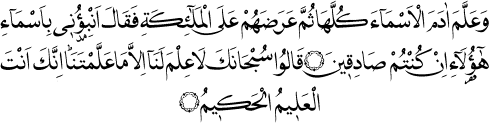 وَعَلَّمَ اٰدَمَ الْاَسْمَاءَ كُلَّهَا ثُمَّ عَرَضَهُمْ عَلَى الْمَلٰٓئِكَةِ فَقَالَ اَنْبِؤُنٖى بِاَسْمَاءِ
هٰٓؤُلَاءِ اِنْ كُنْتُمْ صَادِقٖينَ ۝ قَالُوا سُبْحَانَكَ لَا عِلْمَ لَنَا اِلَّا مَا عَلَّمْتَنَا اِنَّكَ اَنْتَ
الْعَلٖيمُ الْحَكٖيمُ ۝